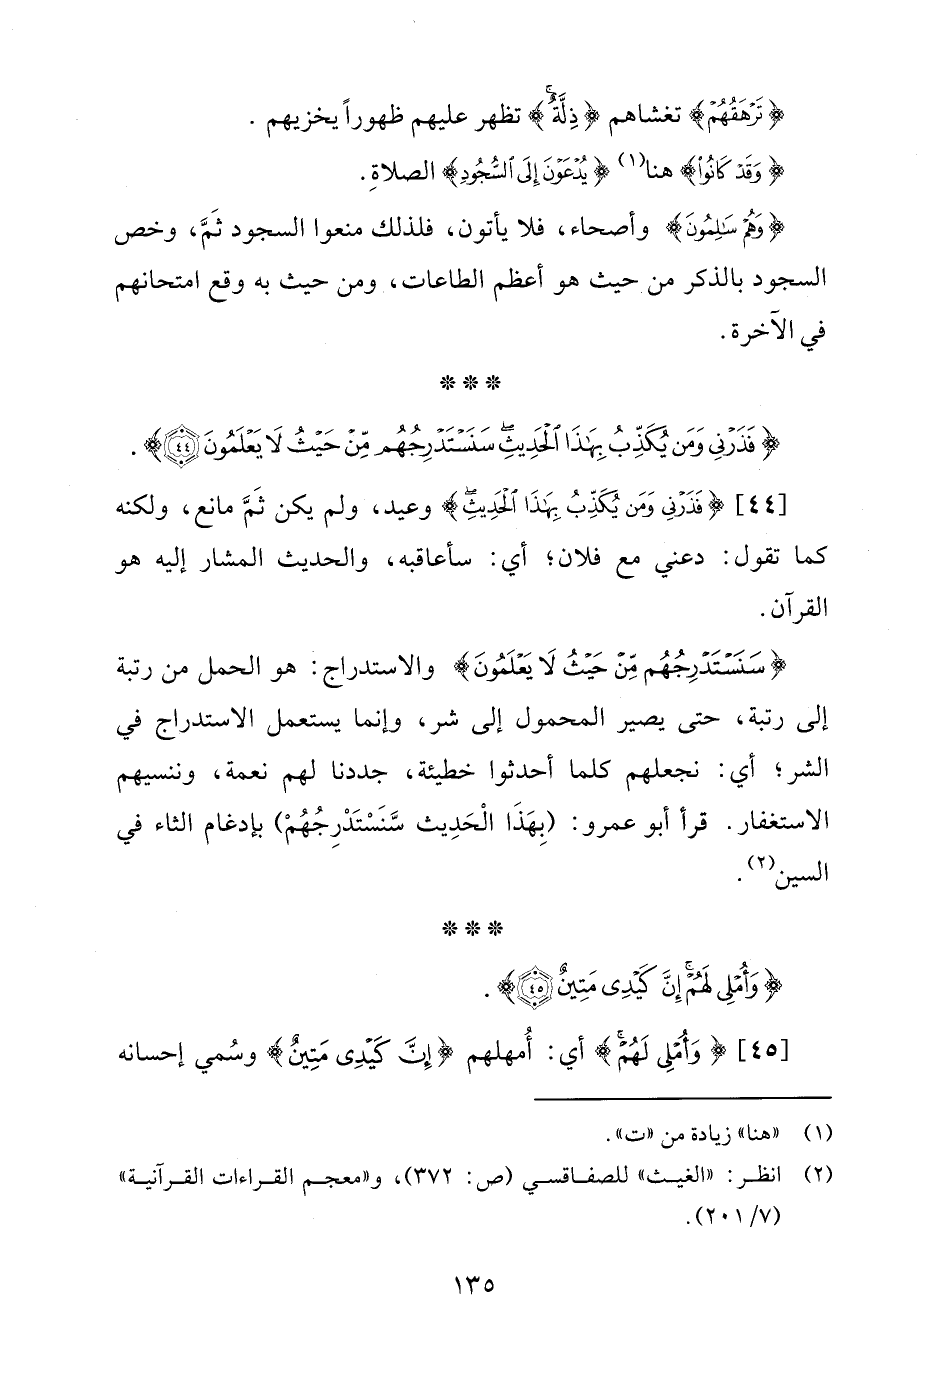 ﴿ تَرْهَقُهُمْ ﴾ تغشاهم ﴿ ذِلَّةٌ ۖ ﴾ تظهر عليهم ظهوراً يخزيهم .
﴿ وَقَدْ كَانُوا۟ ﴾ هنا(١) ﴿ يُدْعَوْنَ إِلَى ٱلسُّجُودِ ﴾ الصلاةِ.
﴿ وَهُمْ سَٰلِمُونَ ﴾ وأصحاء، فلا يأتون، فلذلك منعوا السجود ثَمَّ، وخص
السجود بالذكر من حيث هو أعظم الطاعات، ومن حيث به وقع امتحانهم
في الآخرة.
***
﴿ فَذَرْنِى وَمَن يُكَذِّبُ بِهَٰذَا ٱلْحَدِيثِ ۖ سَنَسْتَدْرِجُهُم مِّنْ حَيْثُ لَا يَعْلَمُونَ ٤٤ ﴾ .
[٤٤] ﴿ فَذَرْنِى وَمَن يُكَذِّبُ بِهَٰذَا ٱلْحَدِيثِ ۖ ﴾ وعيد، ولم يكن ثَمَّ مانع، ولكنه
كما تقول: دعني مع فلان؛ أي: سأعاقبه، والحديث المشار إليه هو
القرآن.
﴿ سَنَسْتَدْرِجُهُم مِّنْ حَيْثُ لَا يَعْلَمُونَ ﴾ والاستدراج: هو الحمل من رتبة
إلى رتبة، حتى يصير المحمول إلى شر، وإنما يستعمل الاستدراج في
الشر؛ أي: نجعلهم كلما أحدثوا خطيئة، جددنا لهم نعمة، وننسيهم
الاستغفار. قرأ أبو عمرو: (بِهَذَا الْحَدِيث سَّنَسْتَدْرِجُهُمْ) بإدغام الثاء في
السين(٢).
***
﴿ وَأُمْلِى لَهُمْ ۚ إِنَّ كَيْدِى مَتِينٌ ٤٥ ﴾ .
[٤٥] ﴿ وَأُمْلِى لَهُمْ ۚ ﴾ أي: أُمهلهم ﴿ إِنَّ كَيْدِى مَتِينٌ ﴾ وسُمي إحسانه
(١) «هنا» زيادة من «ت».
(٢) انظر: «الغيث» للصفاقسي (ص: ٣٧٢)، و«معجم القراءات القرآنية»
(٧/ ٢٠١).
١٣٥